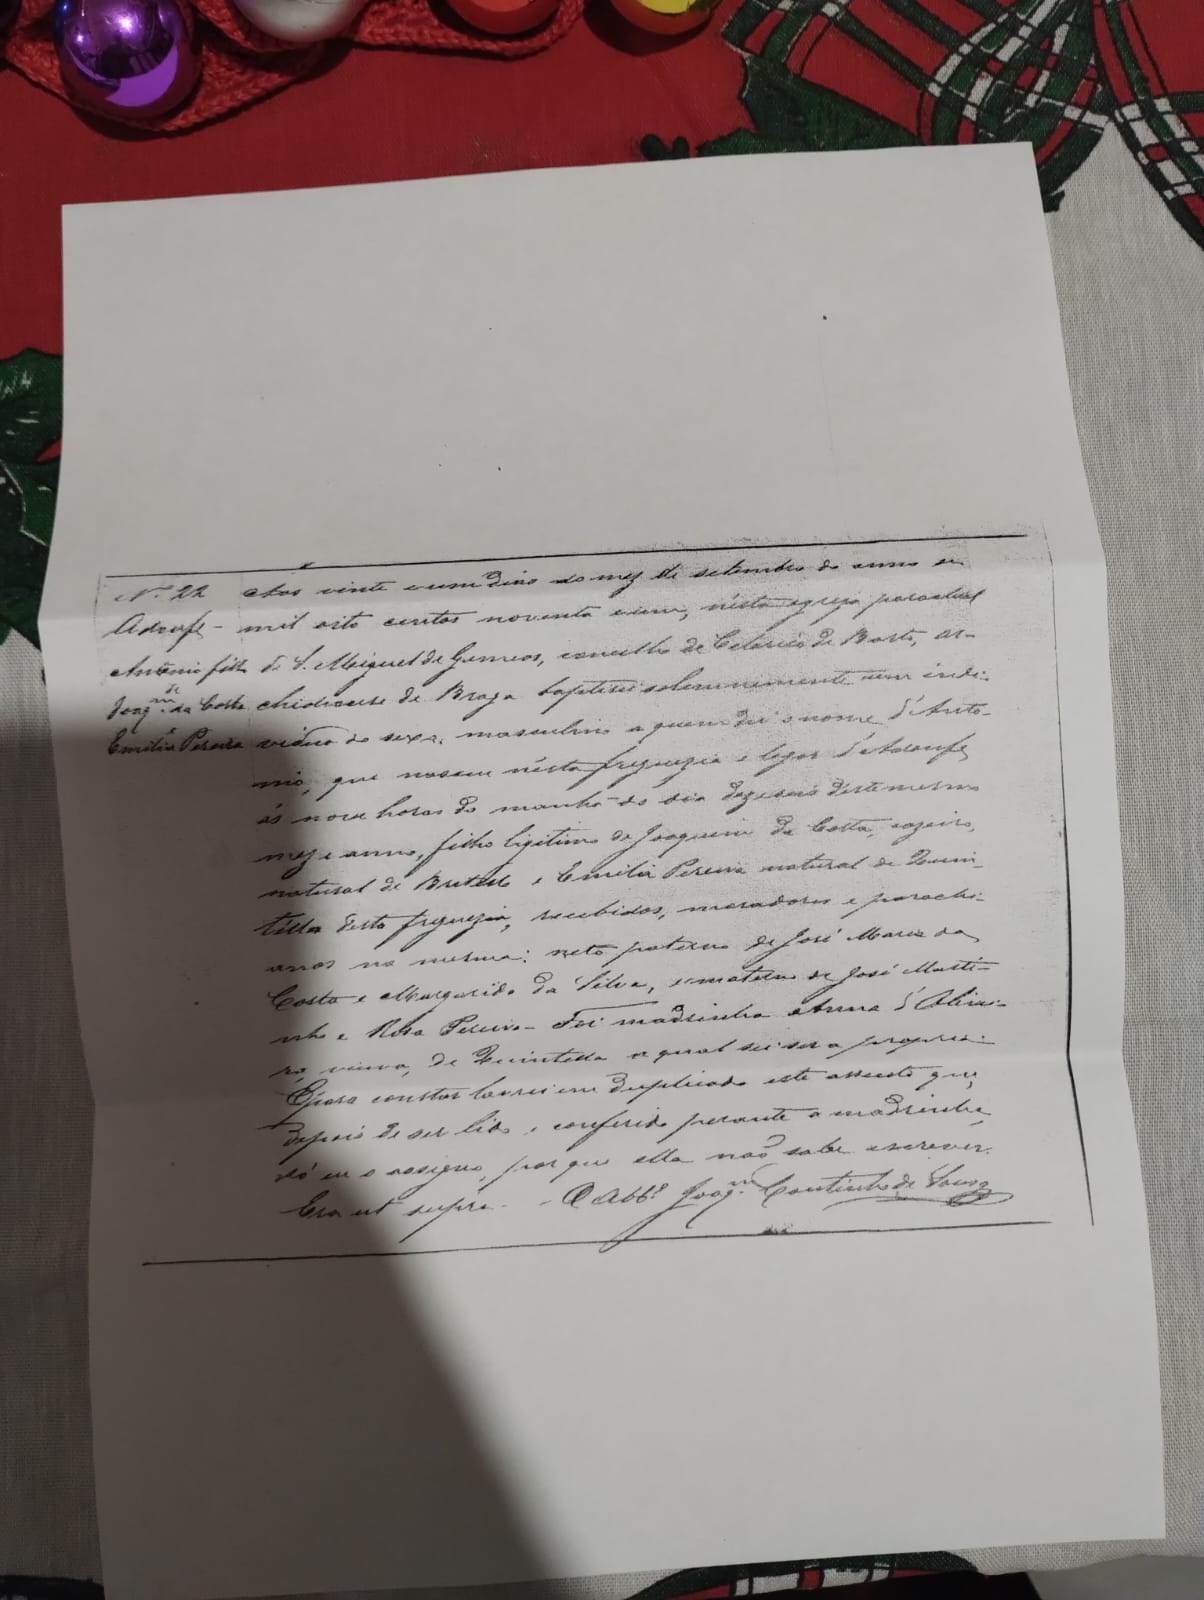 Nº 22
Adaufe
António filho
de Joaqm. da Costa
Emilia Pereira
Aos vinte e um dias do mez de setembro do anno de
mil oito centos noventa e um, n'ésta egreja parochial
de S. Miguel de Gemeos, concelho de Celorico de Basto, ar-
chidiocese de Braga baptisei solemnemente um indi-
viduo do sexo masculino a quem dei o nome d'Anto-
nio, que nasceu n'ésta freguezia e logar d'Adaufe
ás nove horas da manhã do dia dezeseis d'este mesmo
mez e anno, filho legitimo de Joaquim da Costa, caseiro,
natural de Britello e Emilia Pereira natural de Quin-
tella d'esta freguezia, recebidos, moradores e parochi-
anos na mesma: neto paterno de José Maria da
Costa e Margarida da Silva, e materno de José Marti-
nho e Rosa Pereira – Foi madrinha Anna d'Olivei-
ra, viuva, de Quintella a qual sei ser a propria.
E para constar lavrei em duplicado este assento que,
depois de ser lido e conferido perante a madrinha,
só eu o assigno, porque ella não sabe escrever.
Era ut supra. – O Abbe. Joaqm. Coutinho de Sousa